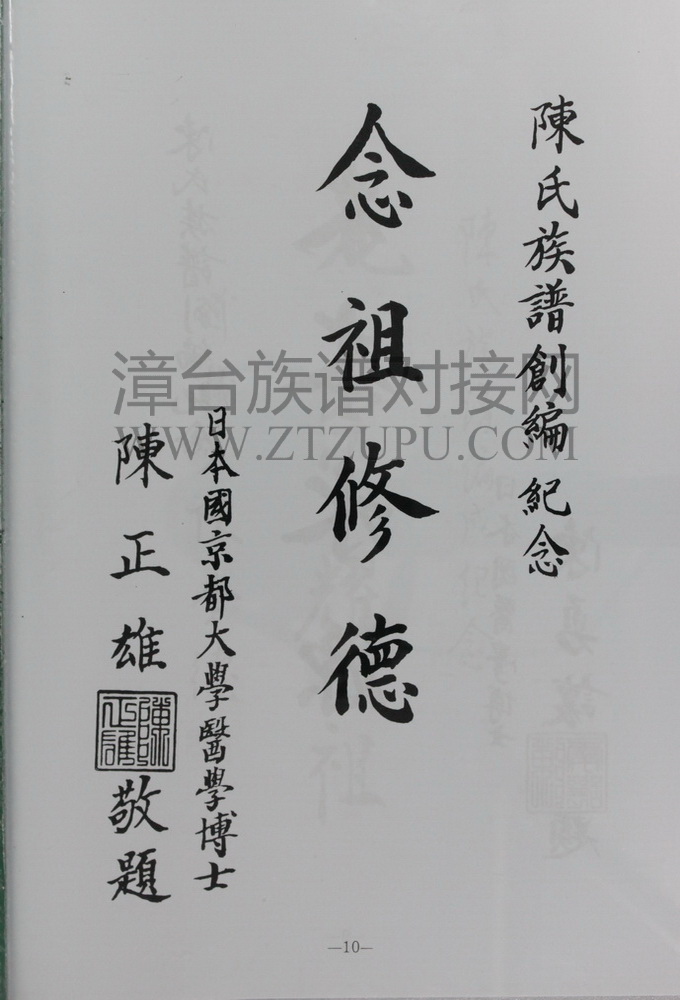 陳氏族譜創編紀念
念祖修德
日本國京都大學醫學博士
陳正雄敬題
漳台族谱对接网
WWW.ZTZUPU.COM
—10—